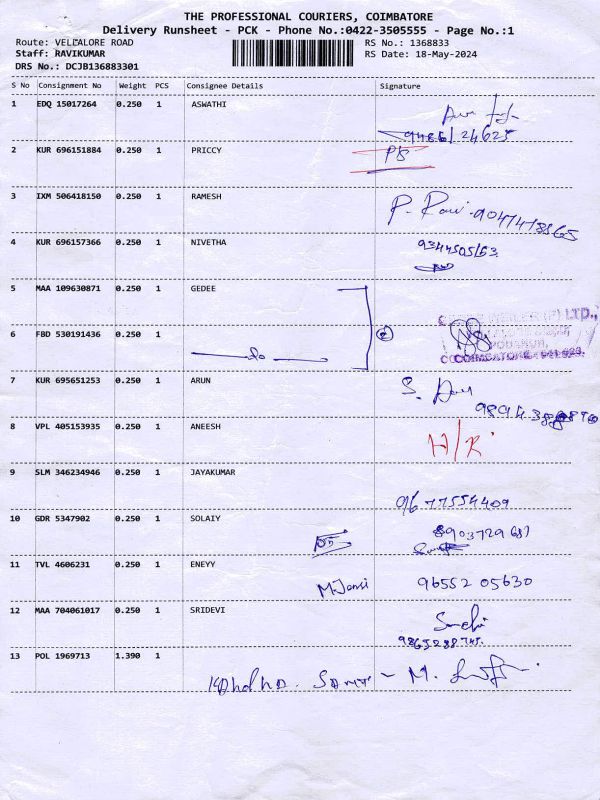 THE PROFESSIONAL COURIERS, COIMBATORE
Delivery Runsheet - PCK - Phone No.:0422-3505555 - Page No.:1
Route: VELLALORE ROAD RS No.: 1368833
Staff: RAVIKUMAR RS Date: 18-May-2024
DRS No.: DCJB136883301
S No Consignment No Weight PCS Consignee Details Signature
1 EDQ 15017264 0.250 1 ASWATHI
9486124625
2 KUR 696151884 0.250 1 PRICCY
3 IXM 506418150 0.250 1 RAMESH
P. Ravi
4 KUR 696157366 0.250 1 NIVETHA
5 MAA 109630871 0.250 1 GEDEE
6 FBD 530191436 0.250 1
do
COIMBATORE
7 KUR 695651253 0.250 1 ARUN
8 VPL 405153935 0.250 1 ANEESH H/R
9 SLM 346234946 0.250 1 JAYAKUMAR
9677554409
10 GDR 5347902 0.250 1 SOLAIY
11 TVL 4606231 0.250 1 ENEYY
M.Jansi 96552 05630
12 MAA 704061017 0.250 1 SRIDEVI
13 POL 1969713 1.390 1
M.